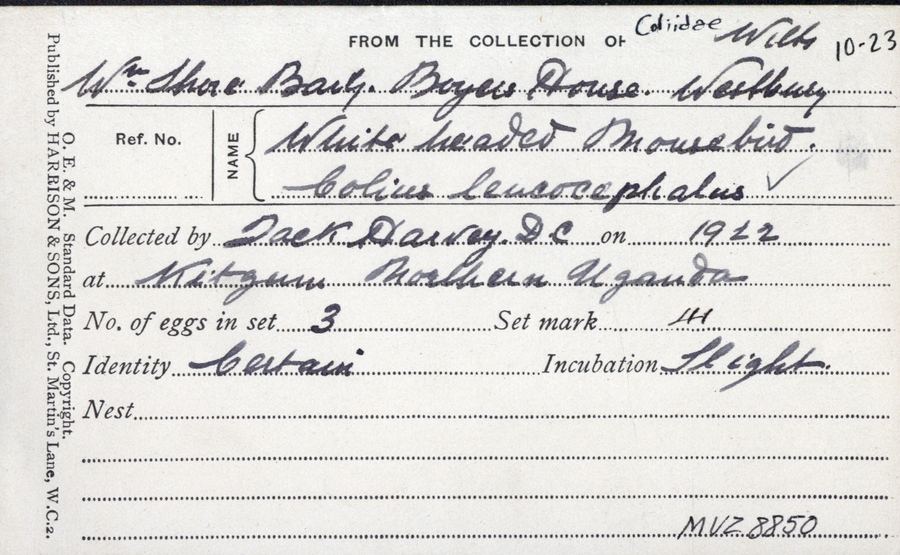 FROM THE COLLECTION OF Coliidae Wilts 10-23
Wm Shore Baily. Boyers House. Westbury
Ref. No. NAME White headed Mousebird.
Colius leucocephalus ✓
Collected by Jack Harvey. D C on 1922
at Kitgum Northern Uganda
No. of eggs in set 3 Set mark III
Identity Certain Incubation Slight.
Nest
MVZ 8850
O. E. & M. Standard Data. Copyright.
Published by HARRISON & SONS, Ltd., St. Martin's Lane, W.C.2.